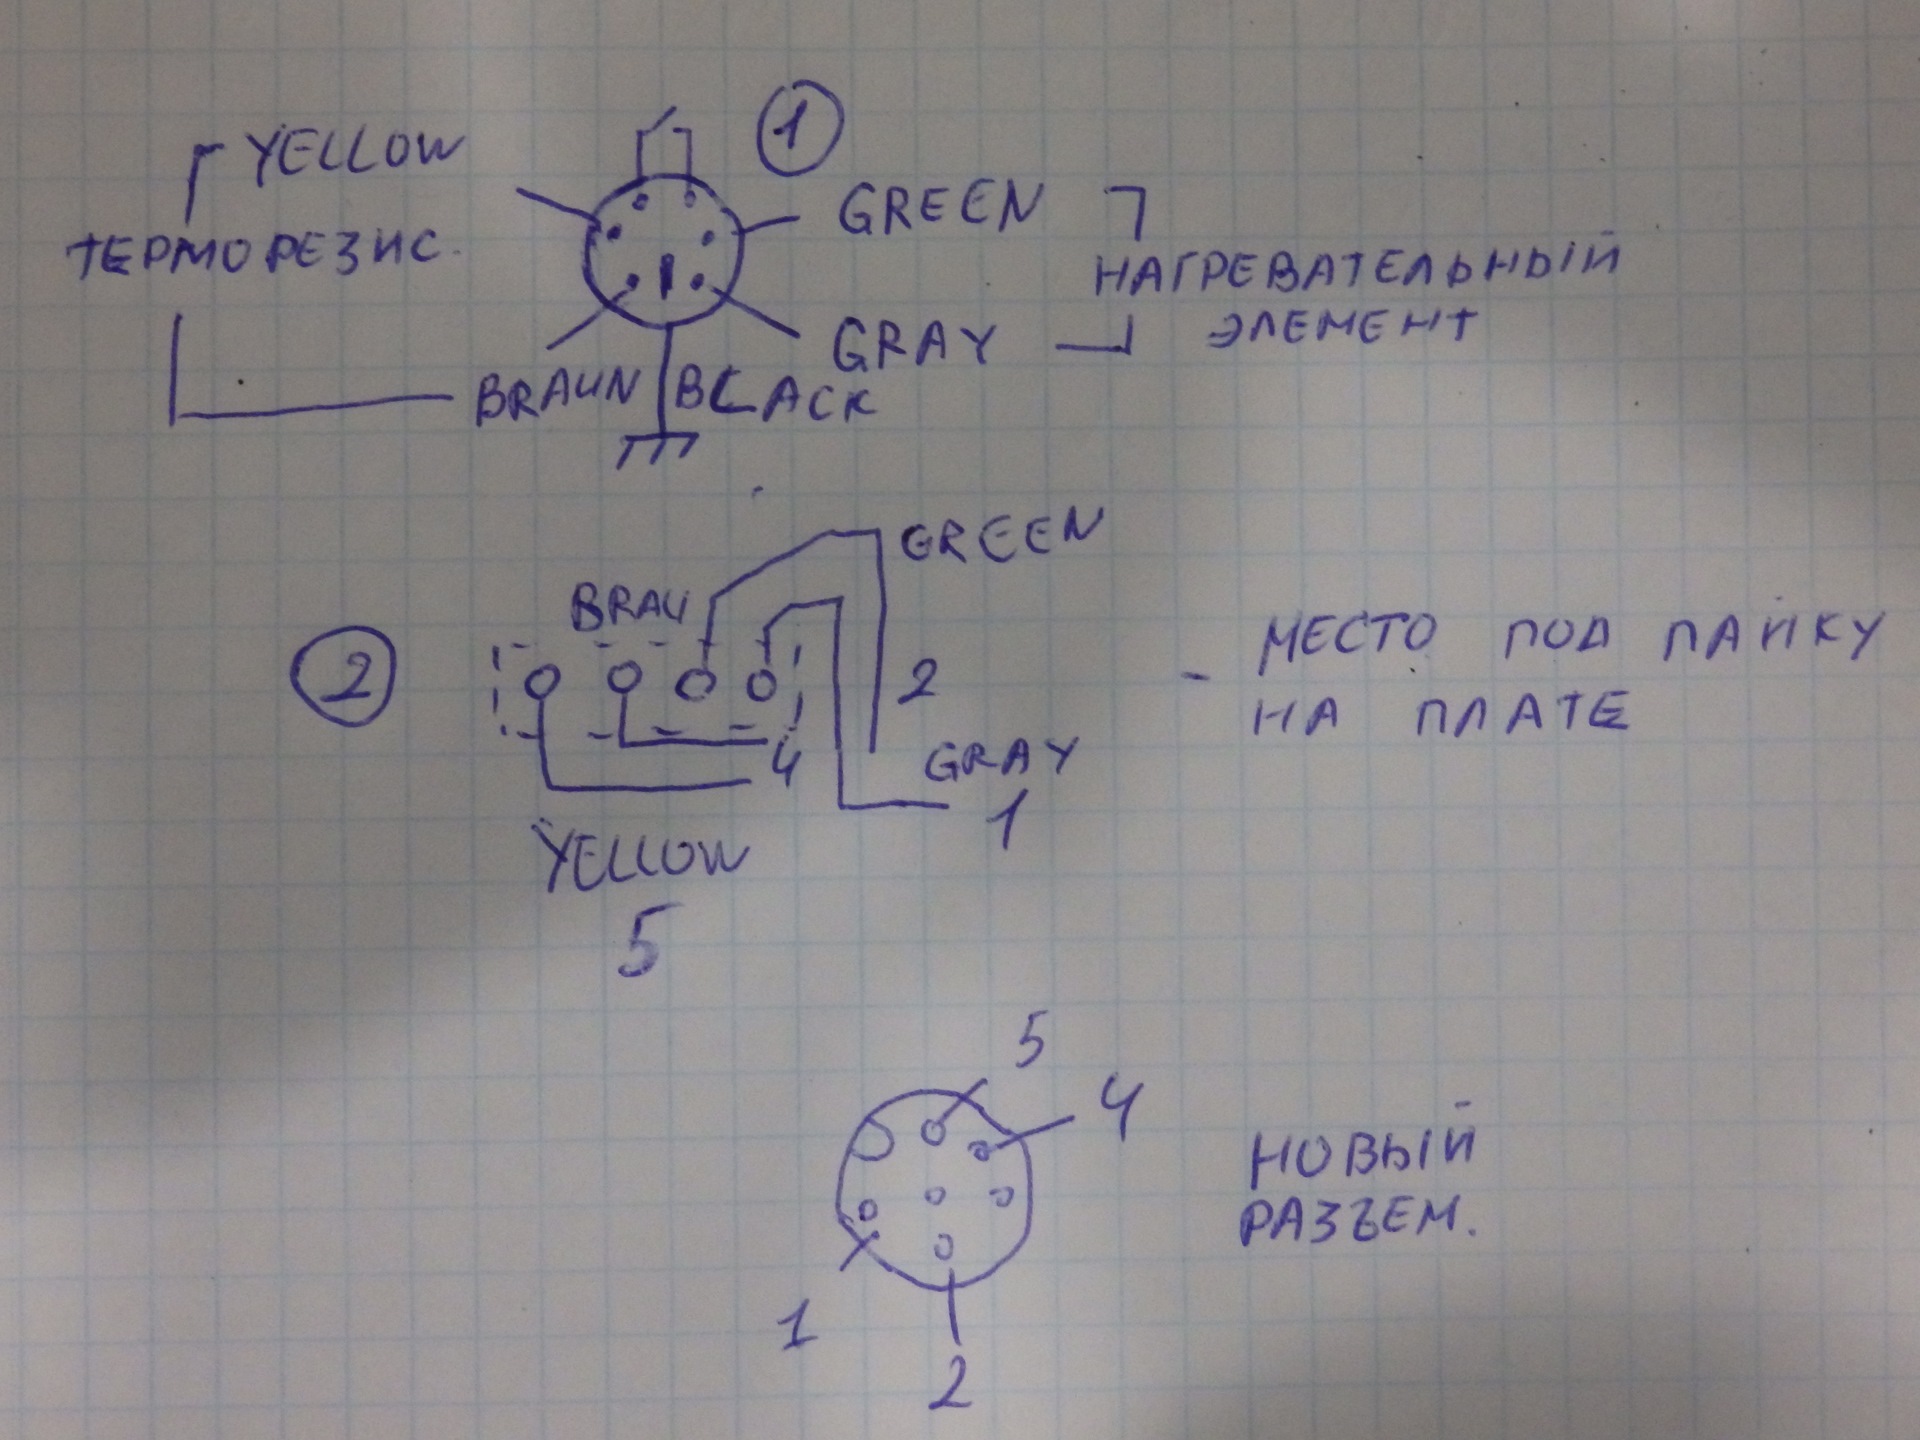 1
YELLOW
GREEN
ТЕРМОРЕЗИС.
НАГРЕВАТЕЛЬНЫЙ
ЭЛЕМЕНТ
GRAY
BRAUN
BLACK
GREEN
BRAU
2
2
МЕСТО ПОД ПАЙКУ
НА ПЛАТЕ
4
GRAY
1
YELLOW
5
5
4
НОВЫЙ
РАЗЪЕМ.
1
2